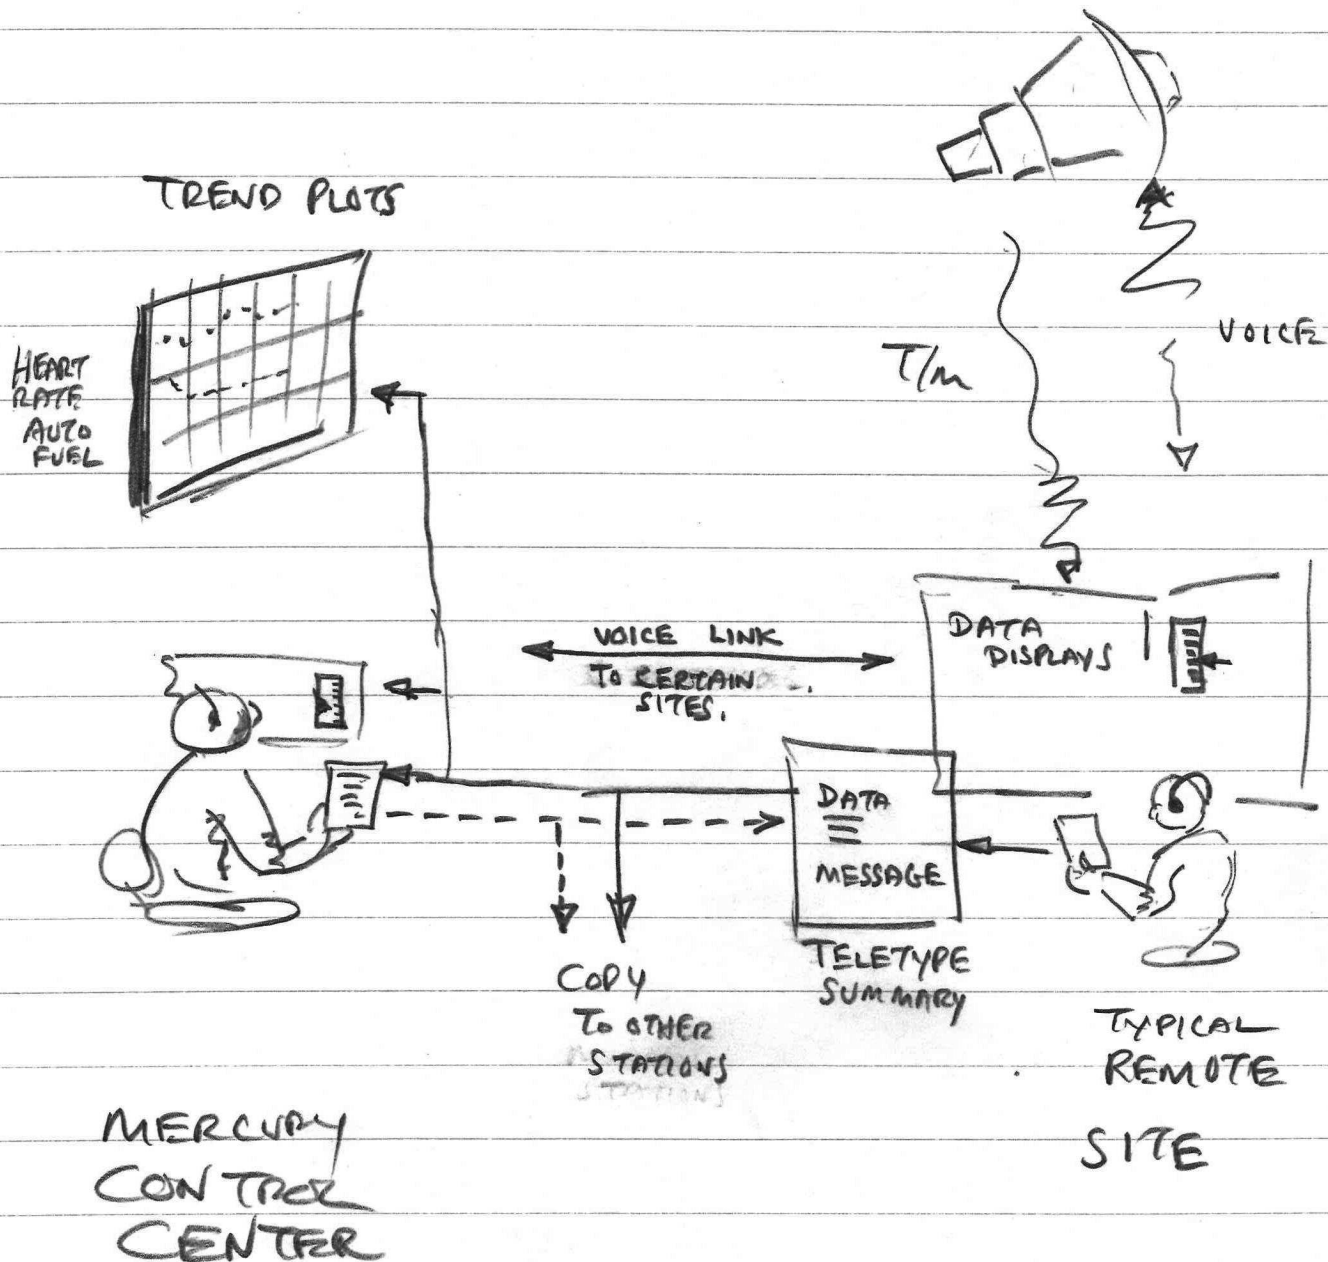 TREND PLOTS
HEART
RATE
AUTO
FUEL
T/M
VOICE
VOICE LINK
TO CERTAIN
SITES.
DATA
DISPLAYS
DATA
MESSAGE
TELETYPE
SUMMARY
COPY
TO OTHER
STATIONS
STATIONS
TYPICAL
REMOTE
SITE
MERCURY
CONTROL
CENTER